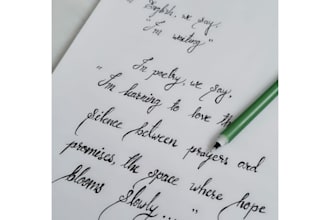 English, we say,
"I'm waiting"
In poetry, we say,
"I'm learning to love the
silence between prayers and
promises, the space where hope
blooms slowly...."